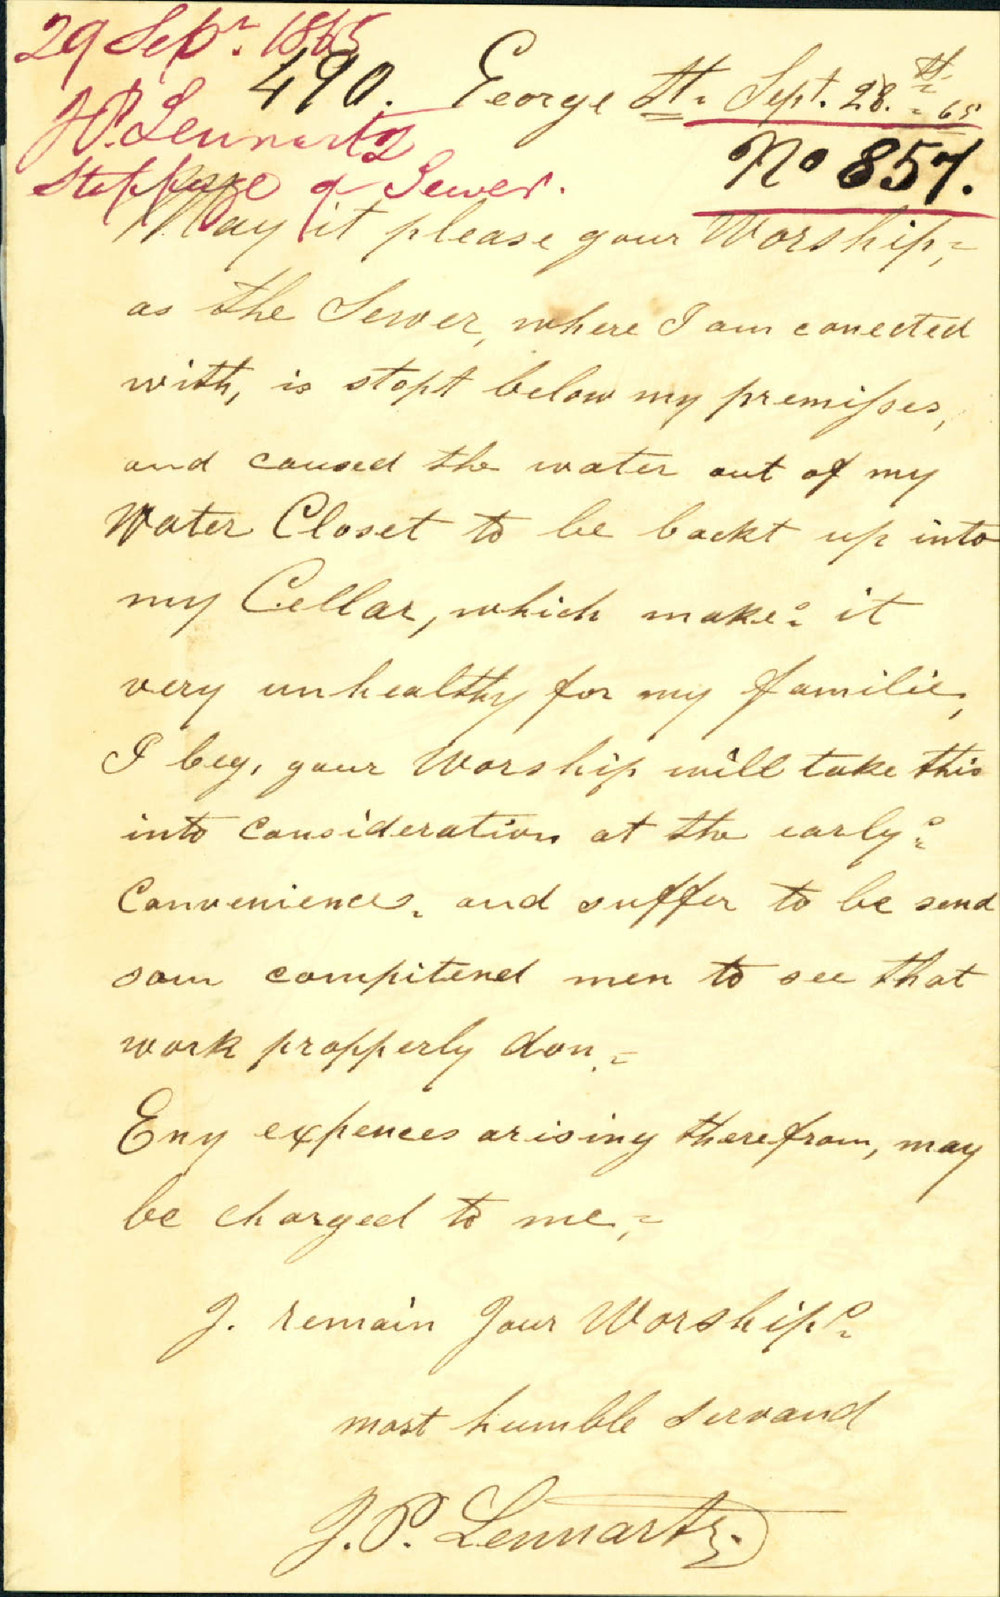 29 Sepr. 1865
490. George St. Sept. 28.th 65
J.P. Lennartz
No 857.
Stoppage of Sewer.
May it please your Worship,=
as the Sewer, where I am conected
with, is stopt below my premisses,
and caused the water out of my
Water Closet to be backt up into
my Cellar, which makes it
very unhealthy for my familie,
I beg, your Worship will take this
into consideration at the early s
Conveniences. and suffer to be send
som compitend men to see that
work propperly don.=
Eny expences arising therefrom, may
be charged to me,=
J. remain Your Worships
most humble servand
J.P. Lennartz.